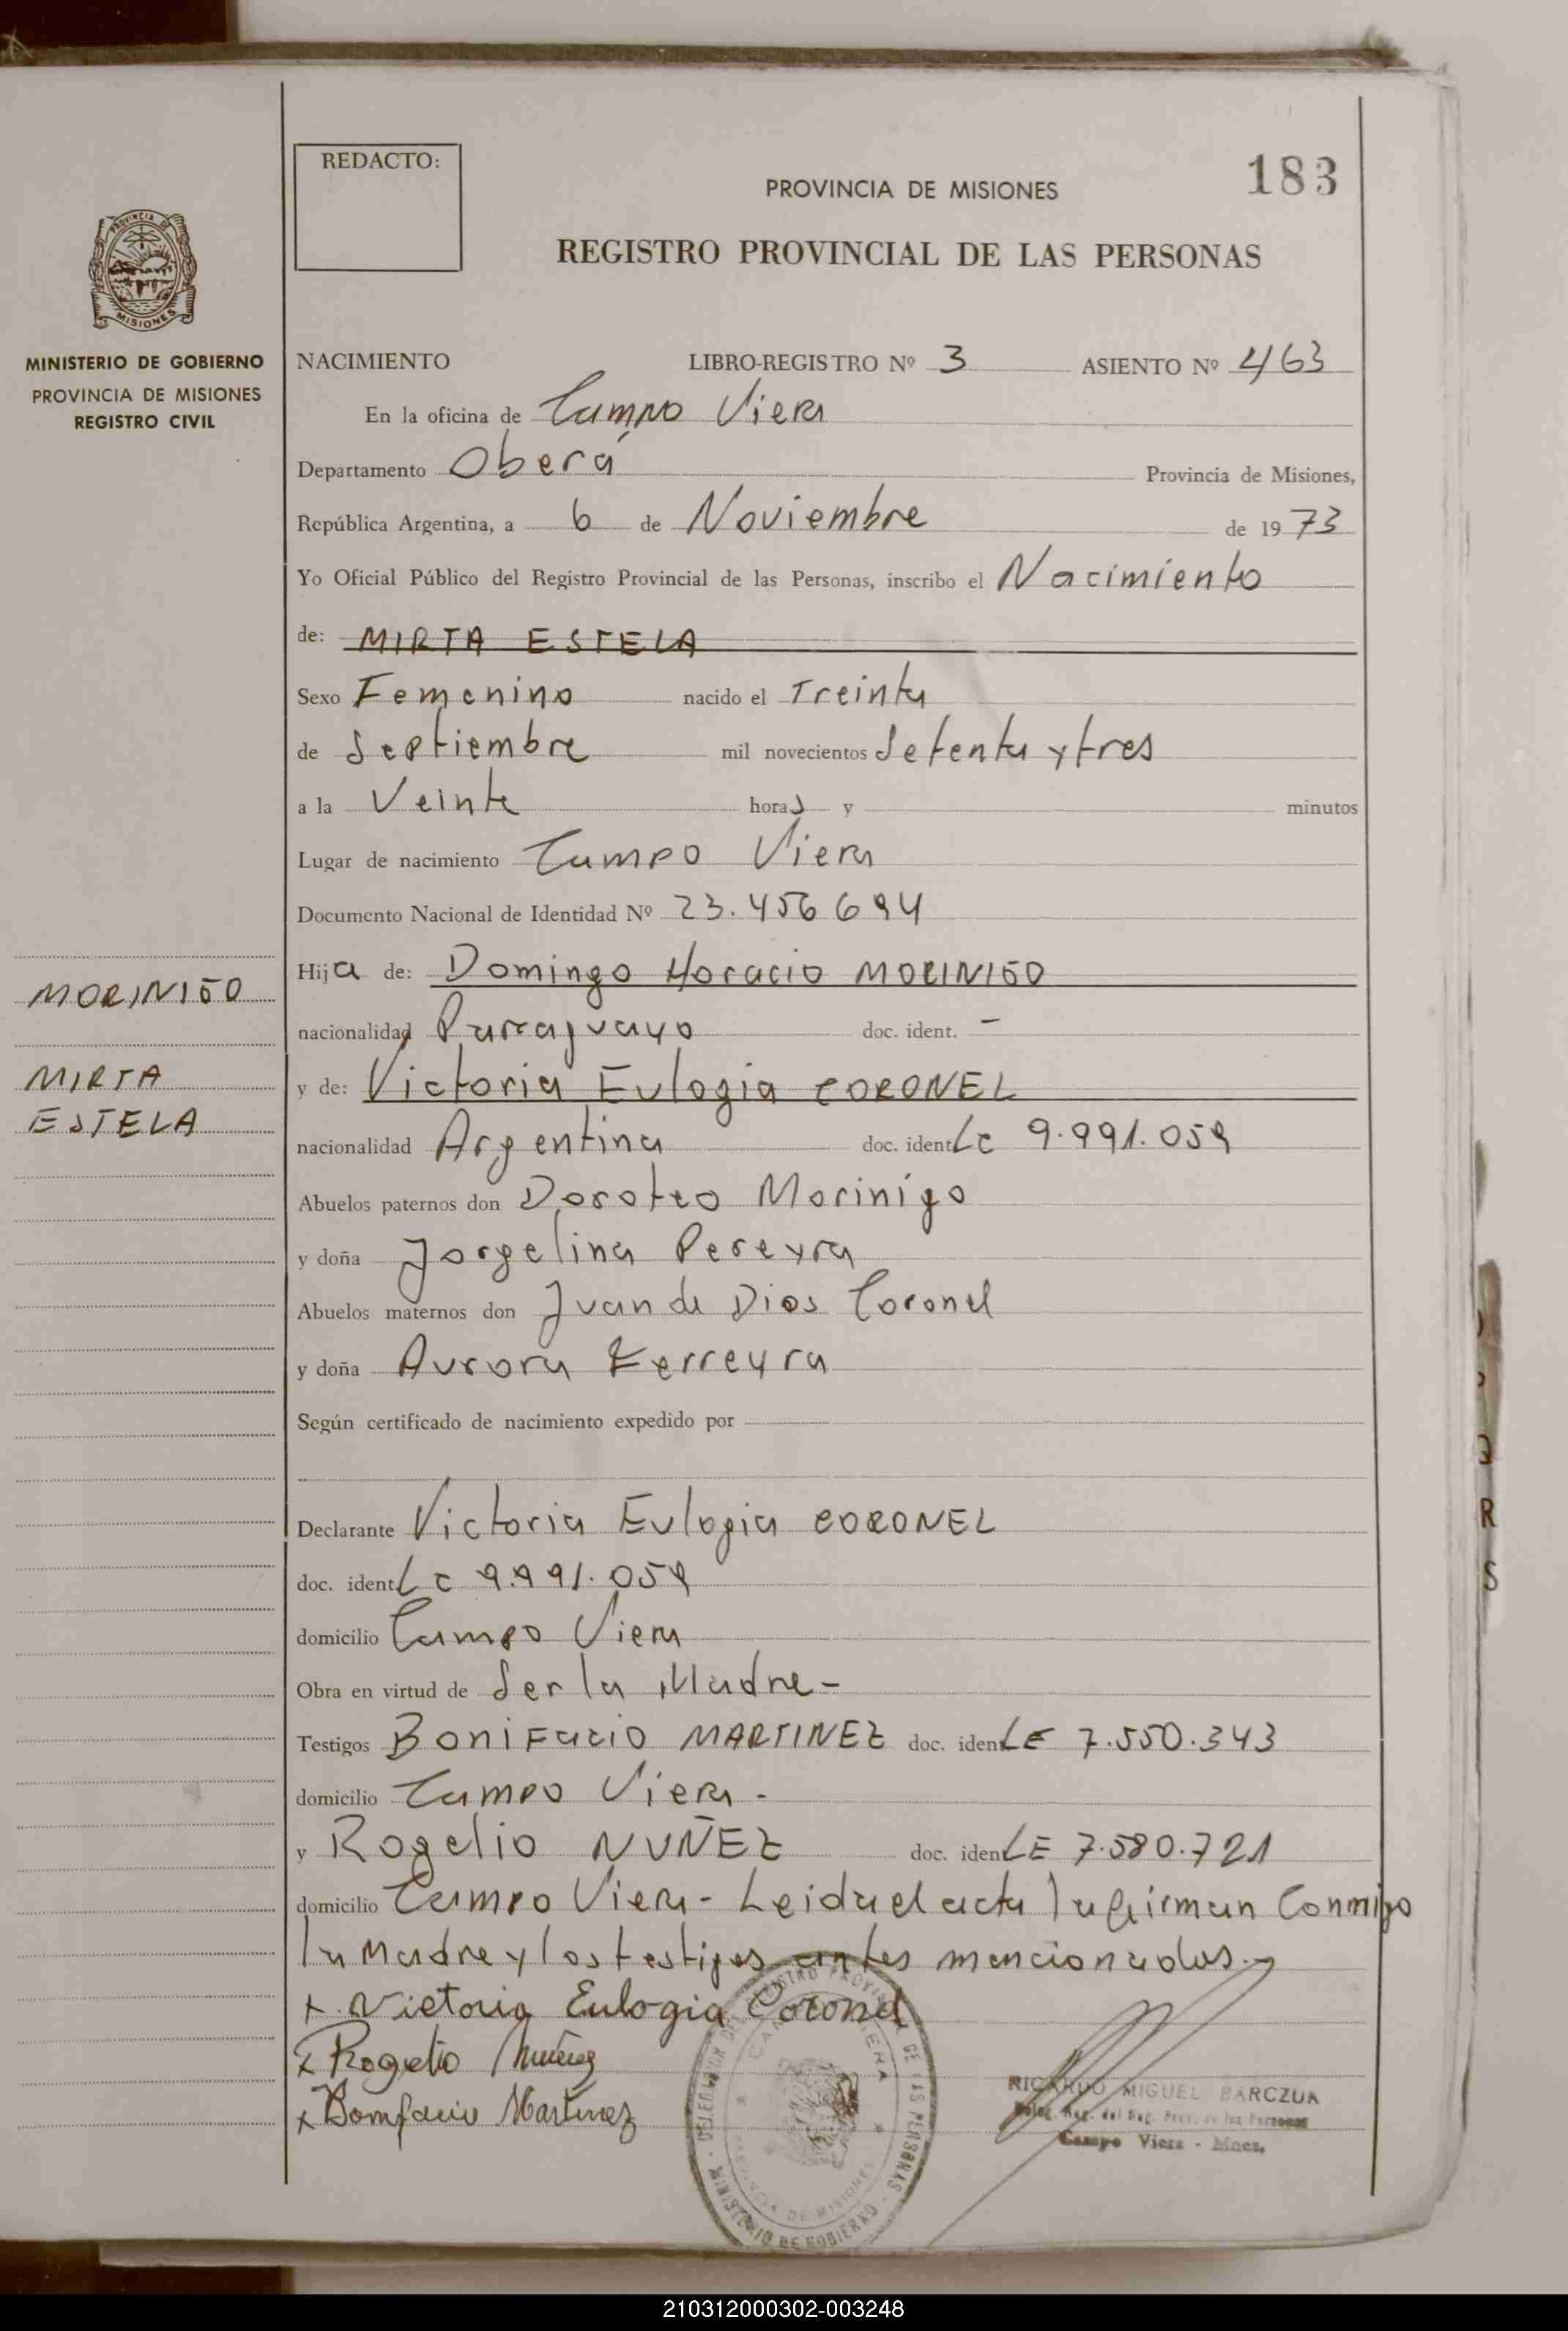 REDACTO:
183
PROVINCIA DE MISIONES
REGISTRO PROVINCIAL DE LAS PERSONAS
PROVINCIA DE
MISIONES
MINISTERIO DE GOBIERNO
PROVINCIA DE MISIONES
REGISTRO CIVIL
NACIMIENTO LIBRO-REGISTRO Nº 3 ASIENTO Nº 463
En la oficina de Campo Viera
Departamento Oberá Provincia de Misiones,
República Argentina, a 6 de Noviembre de 1973
Yo Oficial Público del Registro Provincial de las Personas, inscribo el Nacimiento
de: MIRTA ESTELA
Sexo Femenino nacido el Treinta
de Septiembre mil novecientos Setenta y tres
a la Veinte horas y minutos
Lugar de nacimiento Campo Viera
Documento Nacional de Identidad Nº 23.456694
Hija de: Domingo Horacio MORINIGO
MORINIGO
nacionalidad Paraguayo doc. ident. -
MIRTA
y de: Victoria Eulogia CORONEL
ESTELA
nacionalidad Argentina doc. ident LC 9.991.059
Abuelos paternos don Doroteo Morinigo
y doña Jorgelina Pereyra
Abuelos maternos don Juan de Dios Coronel
y doña Aurora Ferreyra
Según certificado de nacimiento expedido por
Declarante Victoria Eulogia CORONEL
doc. ident LC 9.991.059
domicilio Campo Viera
Obra en virtud de Ser la Madre-
Testigos Bonifacio MARTINEZ doc. iden LE 7.550.343
domicilio Campo Viera.
y Rogelio NUÑEZ doc. iden LE 7.580.721
domicilio Campo Viera- Leida el acta la firman Conmigo
la Madre y los testigos antes mencionados.
x Victoria Eulogia Coronel
x Rogelio Nuñez
x Bonifacio Martinez
RICARDO MIGUEL BARCZUA
Campo Viera - Mnes.
MINISTERIO DE GOBIERNO
210312000302-003248